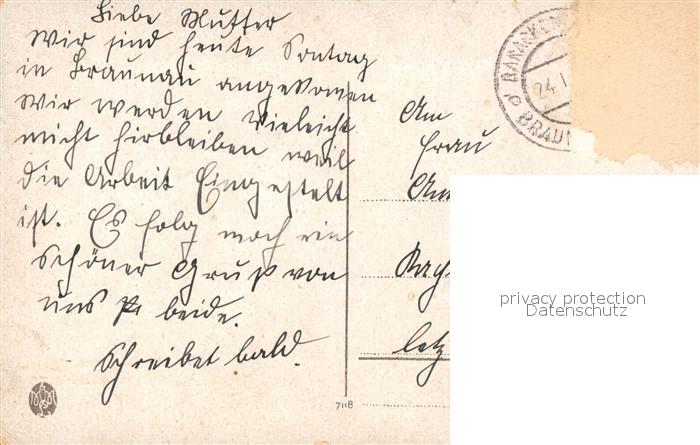 Liebe Mutter
Wir sind heute Sontag
in Braunau angekomen
Wir werden Vieleicht
nicht hirbleiben weil
die Arbeit Eingestelt
ist. Es folg noch ein
schöner Gruß von
uns beide.
Schreibet bald.
An
Frau
BARACKEN
24.I
BRAUN
7118
privacy protection
Datenschutz